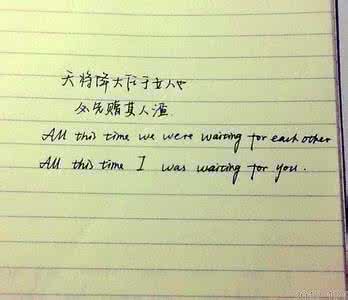 天将降大任于女人也
必先赐其人渣
All this time we were waiting for each other
All this time I was waiting for you.